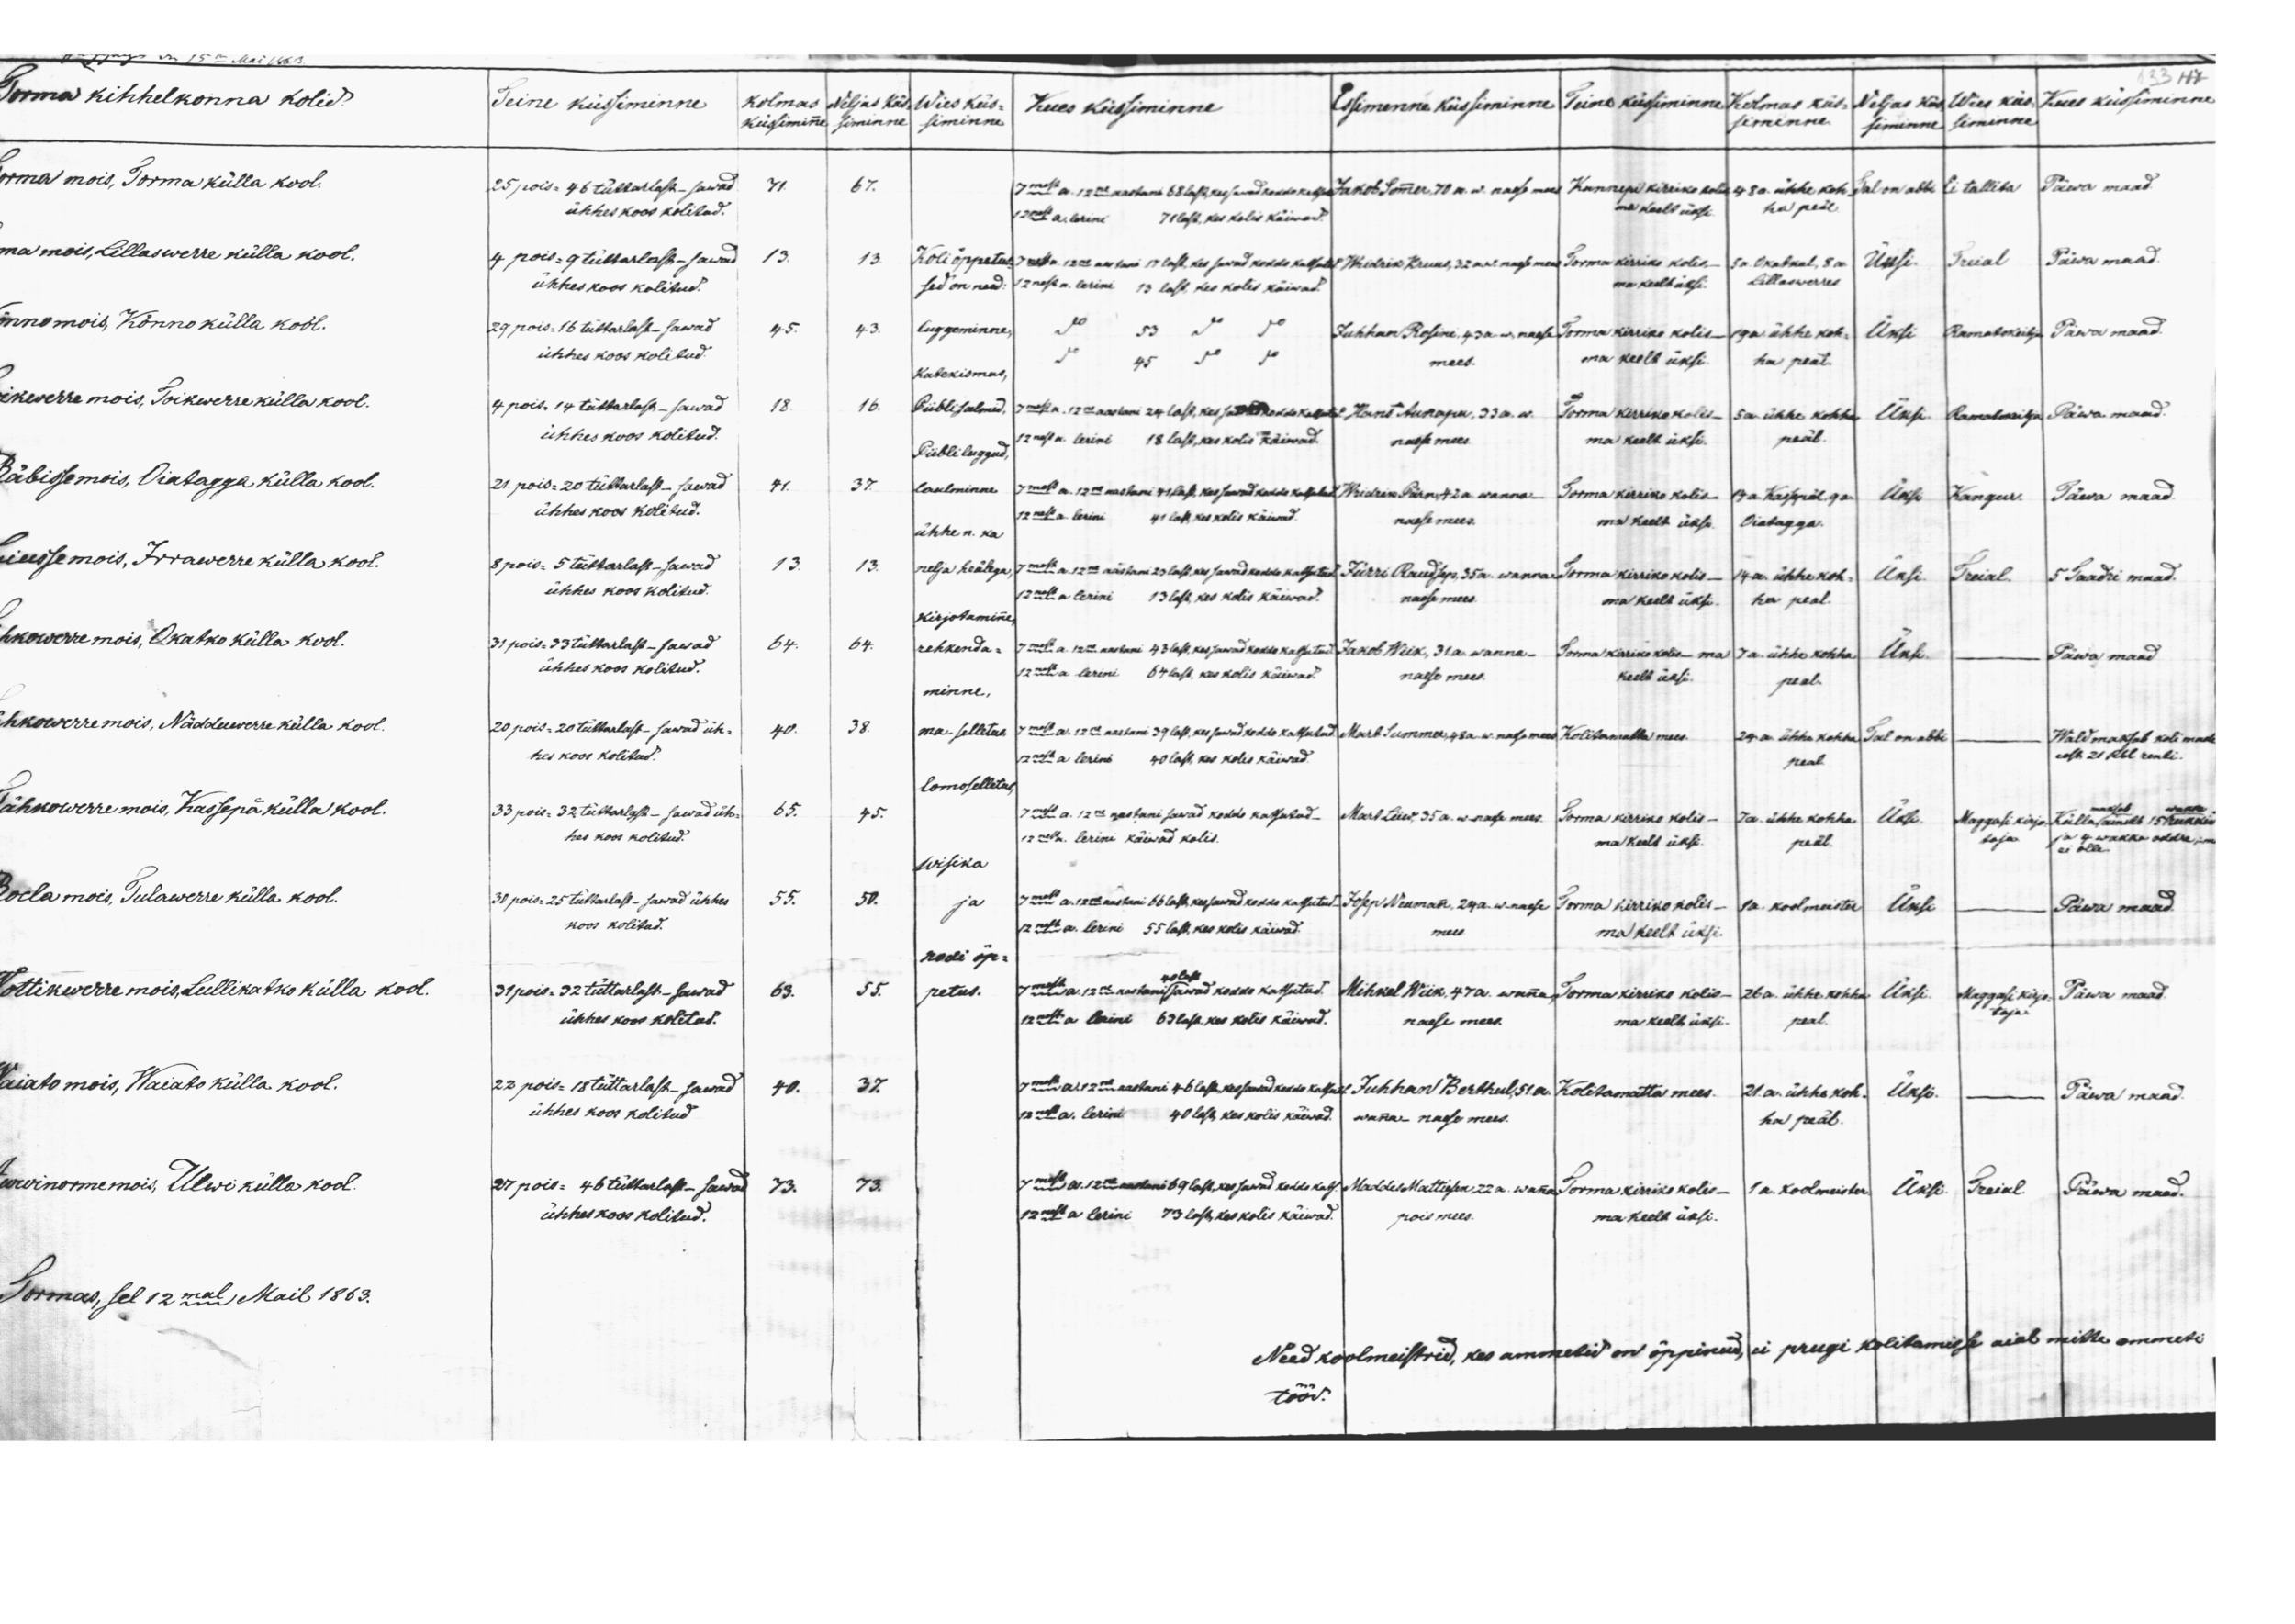 133 117
Torma kihhelkonna kolid.
Teine küssiminne
Kolmas küssimiñe
Neljas küssiminne
Wies küssiminne
Kues küssiminne
Essimenne küssiminne
Teine küssiminne
Kolmas küssiminne
Neljas küssiminne
Wies küssiminne
Kues küssiminne
Torma mois, Torma külla kool.
25 pois= 46 tüttarlast – sawad
ühhes koos kolitud.
71. 67.
7mest a. 12ne aastani 68 last, kes sawad koddo
12nest a. lerini 71 last, kes kolis käiwad.
Jakob Som̃er, 70 a. w. naese mees
Kannepi kirriko kolis
ma keelt üksi.
48 a. ühhe koh-
ha peäl
Tal on abbi
Ei tallita
Päwa maad.
ma mois, Lillaswerre külla kool.
4 pois= 9 tüttarlast – sawad
ühhes koos kolitud.
13. 13.
Koli öppetus-
sed on need:
7mest a. 12ne aastani 17 last, kes sawad koddo katsutud
12nest a. lerini 13 last, kes kolis käiwad.
Widrik Kruus, 32 a. w. naese mees
Torma kirriko kolis –
ma keelt üksi.
5 a. Okatkul, 8 a.
Lillaswerres
Üksi.
Treial
Päwa maad.
önno mois, Könno külla kool.
29 pois= 16 tüttarlast – sawad
ühhes koos kolitud.
45. 43.
luggeminne,
Katekismus,
do 53 do do
do 45 do do
Juhhan Rosine, 43 a. w. naese
mees.
Torma kirriko kolis –
ma keelt üksi.
19 a. ühhe koh-
ha peäl.
Üksi
Ramatokeitja
Päwa maad.
oikewerre mois, Toikwerre külla kool.
4 pois= 14 tüttarlast – sawad
ühhes koos kolitud.
18. 16.
Piibli salmid,
Piibli luggud,
7mest a. 12ne aastani 24 last, kes koddo katsutud
12nest a. lerini 18 last, kes kolis käiwad.
Hans Aunapu, 33 a. w.
naese mees
Torma kirriko kolis –
ma keelt üksi.
5 a. ühhe kohha
peäl.
Üksi
Ramatokeitja
Päwa maad.
Räbisse mois, Oiatagga külla kool.
21 pois= 20 tüttarlast – sawad
ühhes koos kolitud.
41. 37.
laulminne
ühhe n. ka
7mest a. 12ne aastani 41 last, kes sawad koddo katsutud
12nest a. lerini 41 last, kes kolis käiwad.
Widrik Pärn, 42 a. wanna –
naese mees.
Torma kirriko kolis –
ma keelt üksi.
19 a. Kassepäl, 9 a.
Oiatagga.
Üksi
Kangur.
Päwa maad.
iusse mois, Irrawerre külla kool.
8 pois= 5 tüttarlast – sawad
ühhes koos kolitud.
13. 13.
nelja heälega,
kirjotamiñe,
7mest a. 12ne aastani 23 last, kes sawad koddo katsutud
12nest a lerini 13 last, kes kolis käiwad.
Jürri Raudsep, 35 a. wanna
naese mees.
Torma kirriko kolis –
ma keelt üksi.
14 a. ühhe koh-
ha peäl.
Üksi.
Treial.
5 Taadri maad.
hkowerre mois, Okatko külla kool.
31 pois= 33 tüttarlast – sawad
ühhes koos kolitud.
64. 64.
rehkenda-
minne,
7mest a. 12ne aastani 43 last, kes sawad koddo katsutud
12nest a lerini 64 last, kes kolis käiwad.
Jakob Wiik, 31 a. wanna –
naese mees.
Torma kirriko kolis – ma
keelt üksi.
7 a. ühhe kohha
peal.
Üksi.
Päwa maad
hkowerre mois, Nädduwerre külla kool.
20 pois= 20 tüttarlast – sawad üh-
hes koos kolitud.
40. 38.
ma- selletus
lomoselletus,
7mest a. 12ne aastani 39 last, kes sawad koddo katsutud
12nest a lerini 40 last, kes kolis käiwad.
Mart Summer, 48 a. w. naese mees
Kolitamatta mees.
24 a. ühhe kohha
peal
Tal on abbi
Wald maksab koli maade
eest 21 Rbl renti.
Tähkowerre mois, Kassepä külla kool.
33 pois= 32 tüttarlast – sawad üh-
hes koos kolitud.
65. 45.
wisika
7mest a. 12ne aastani sawad koddo katsutud –
12nest a. lerini käiwad kolis.
Mart Liiw, 35 a. w. naese mees.
Torma kirriko kolis –
ma keelt üksi.
7 a. ühhe kohha
peäl.
Üksi.
Maggasi kirjo-
taja
Külla maksab ainult 15 wakka rukkid
ja 4 wakka oddre,
ei olle
Roela mois, Tulawerre külla kool.
30 pois= 25 tüttarlast – sawad ühhes
koos kolitud.
55. 50.
ja
nodi öp-
7mest a. 12ne aastani 66 last, kes sawad koddo katsutud –
12nest a. lerini 55 last, kes kolis käiwad.
Josep Neumañ, 24 a. w. naese
mees
Torma kirriko kolis –
ma keelt üksi.
1 a. koolmeister
Üksi
Päwa maad.
Wottikwerre mois, Lullikatko külla kool.
31 pois= 32 tüttarlast – sawad
ühhes koos kolitud.
63. 55.
petus.
7mest a. 12ne aastani 40 last sawad koddo katsutud.
12nest a lerini 63 last, kes kolis käiwad.
Mihkel Wiik, 47 a. waña
naese mees.
Torma kirriko kolis –
ma keelt üksi.
26 a. ühhe kohha
peal.
Üksi.
Maggasi kirjo-
taja
Päwa maad.
Waiato mois, Waiato külla kool.
22 pois= 18 tüttarlast – sawad
ühhes koos kolitud
40. 37.
7mest a. 12ne aastani 46 last, kes sawad koddo katsutud
12nest a. lerini 40 last, kes kolis käiwad.
Juhhan Berthul, 51 a.
waña – naese mees.
Kolitamatta mees.
21 a. ühhe koh-
ha peäl.
Üksi.
Päwa maad.
winorme mois, Ulwi külla kool.
27 pois= 46 tüttarlast – sawad
ühhes koos kolitud.
73. 73.
7mest a. 12ne aastani 69 last, kes sawad koddo kats
12nest a lerini 73 last, kes kolis käiwad.
Maddes Mattiesen, 22 a. waña
pois mees.
Torma kirriko kolis –
ma keelt üksi.
1 a. koolmeister
Üksi.
Treial
Päwa maad.
Tormas, sel 12mal Mail 1863.
Need koolmeistrid, kes ammetid on öppinud, ei prugi kolitamisse aial mitte ammeti
tööd.